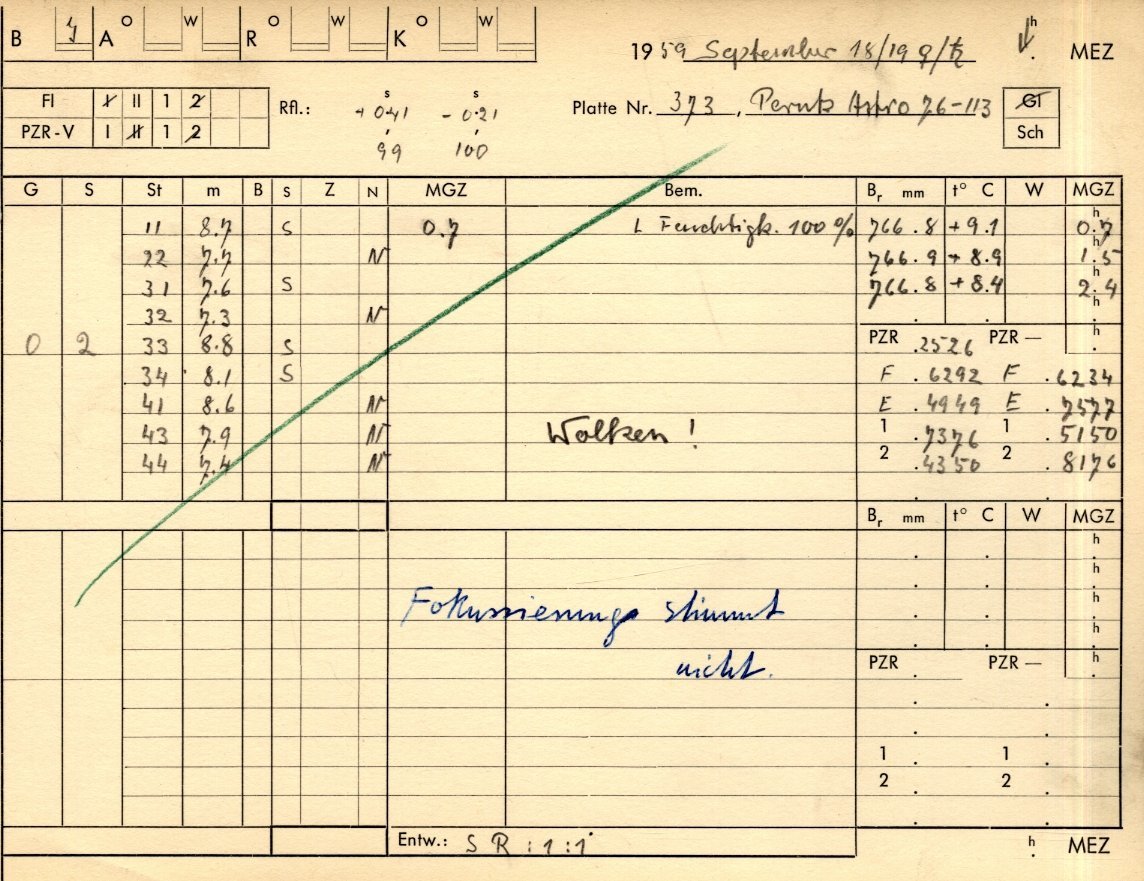 B y A O W R O W K O W
1959 September 18/19 ♀/♄ h MEZ
FI I II 1 2
PZR-V I II 1 2
Rfl.: + 0.41 s - 0.21 s
99 100
Platte Nr. 373, Perutz Astro 76-113
GI
Sch
G S St m B S Z N MGZ Bem. Br mm t° C W MGZ
11 8.7 S 0.7 L Feuchtigk. 100 % 766.8 +9.1 0.7 h
22 7.7 N 766.9 +8.9 1.5 h
31 7.6 S 766.8 +8.4 2.4 h
32 7.3 N h
0 2 33 8.8 S PZR .2526 PZR — h
34 8.1 S F .6292 F .6234
41 8.6 N E .4949 E .7577
43 7.9 N Wolken! 1 .7376 1 .5150
44 7.4 N 2 .4350 2 .8176
Br mm t° C W MGZ
h
h
Fokussierung stimmt h
h
nicht. PZR PZR — h
1 1
2 2
Entw.: S R : 1 : 1 h MEZ